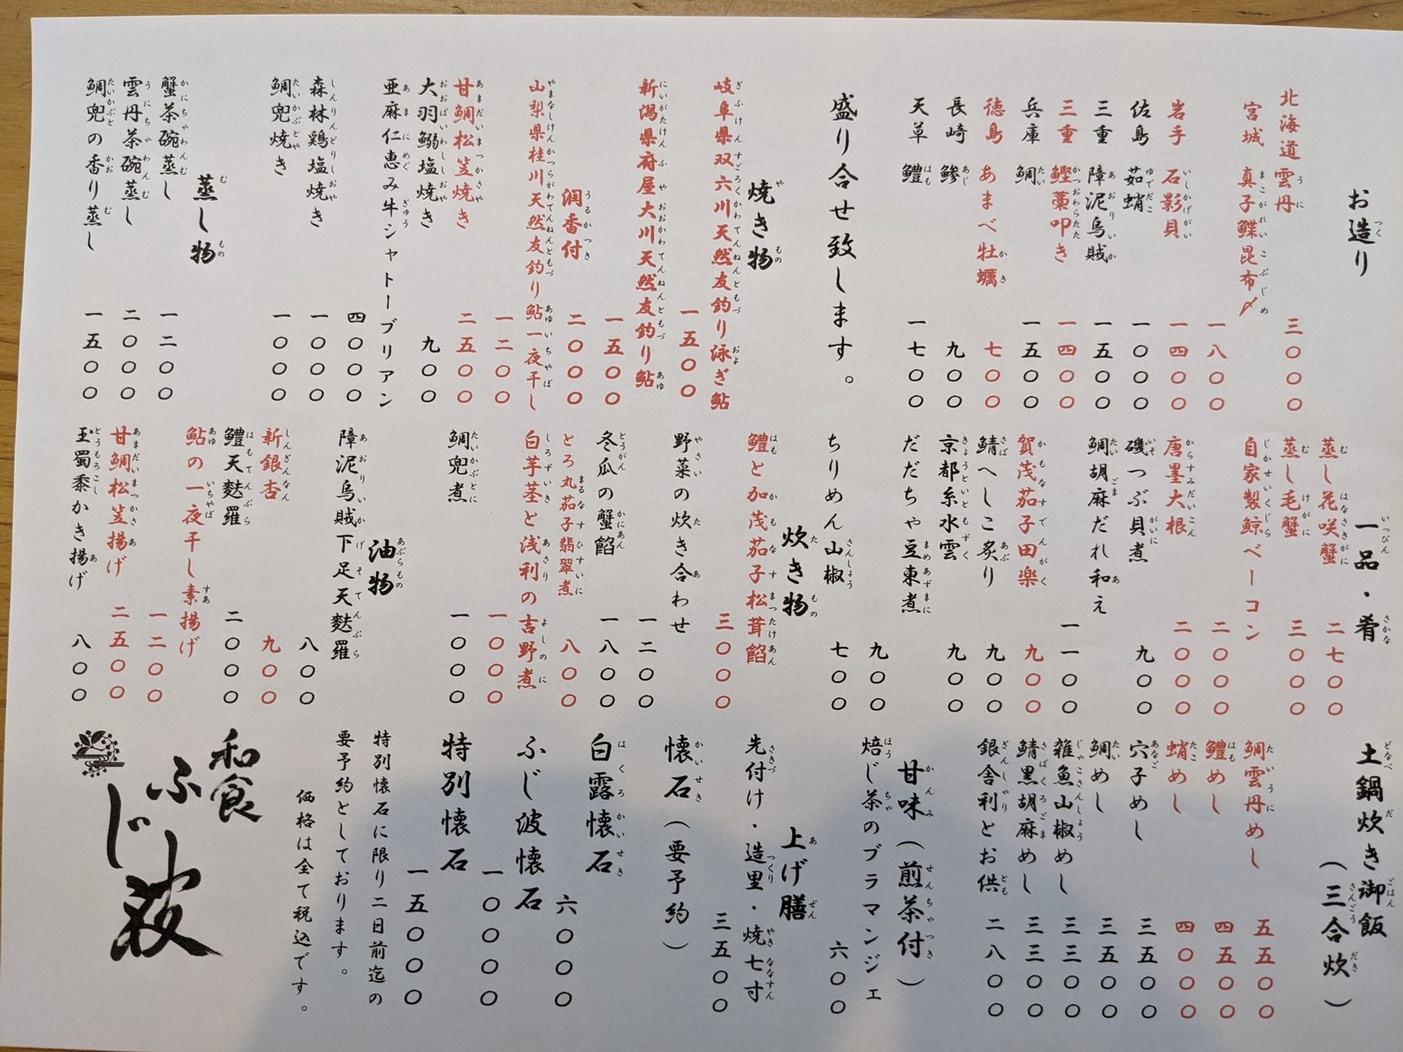 お造り
北海道 雲丹 三〇〇〇
宮城 真子鰈昆布〆 一八〇〇
岩手 石影貝 一四〇〇
佐島 茹蛸 一〇〇〇
三重 障泥烏賊 一五〇〇
三重 鰹藁叩き 一四〇〇
兵庫 鯛 一五〇〇
徳島 あまべ牡蠣 七〇〇
長崎 鯵 九〇〇
天草 鱧 一七〇〇
盛り合せ致します。
焼き物
岐阜県双六川天然友釣り泳ぎ鮎 一五〇〇
新潟県府屋大川天然友釣り鮎 一五〇〇
潤香付 二〇〇〇
山梨県桂川天然友釣り鮎一夜干し 一二〇〇
甘鯛松笠焼き 二五〇〇
大羽鰯塩焼き 九〇〇
亜麻仁恵み牛シャトーブリアン 四〇〇〇
森林鶏塩焼き 一〇〇〇
鯛兜焼き 一〇〇〇
蒸し物
蟹茶碗蒸し 一二〇〇
雲丹茶碗蒸し 二〇〇〇
鯛兜の香り蒸し 一五〇〇
一品・肴
蒸し花咲蟹 二七〇〇
蒸し毛蟹 三〇〇〇
自家製鯨ベーコン 二〇〇〇
唐墨大根 二〇〇〇
磯つぶ貝煮 九〇〇
鯛胡麻だれ和え 一一〇〇
賀茂茄子田楽 九〇〇
鯖へしこ炙り 九〇〇
京都糸水雲 九〇〇
だだちゃ豆東煮 九〇〇
ちりめん山椒 七〇〇
炊き物
鱧と加茂茄子松茸餡 三〇〇〇
野菜の炊き合わせ 一二〇〇
冬瓜の蟹餡 一八〇〇
とろ丸茄子翡翠煮 八〇〇
白芋茎と浅利の吉野煮 一〇〇〇
鯛兜煮 一〇〇〇
油物
障泥烏賊下足天麩羅 八〇〇
新銀杏 九〇〇
鱧天麩羅 二〇〇〇
鮎の一夜干し素揚げ 一二〇〇
甘鯛松笠揚げ 二五〇〇
玉蜀黍かき揚げ 八〇〇
土鍋炊き御飯
(三合炊)
鯛雲丹めし 五五〇〇
鱧めし 四五〇〇
蛸めし 四〇〇〇
穴子めし 三五〇〇
鯛めし 三五〇〇
雑魚山椒めし 三三〇〇
鯖黒胡麻めし 三三〇〇
銀舎利とお供 二八〇〇
甘味(煎茶付)
焙じ茶のブラマンジェ 六〇〇
上げ膳
先付け・造里・焼七寸 三五〇〇
懐石(要予約)
白露懐石 六〇〇〇
ふじ波懐石 一〇〇〇〇
特別懐石 一五〇〇〇
特別懐石に限り二日前迄の
要予約としております。
価格は全て税込です。
和食
ふじ波